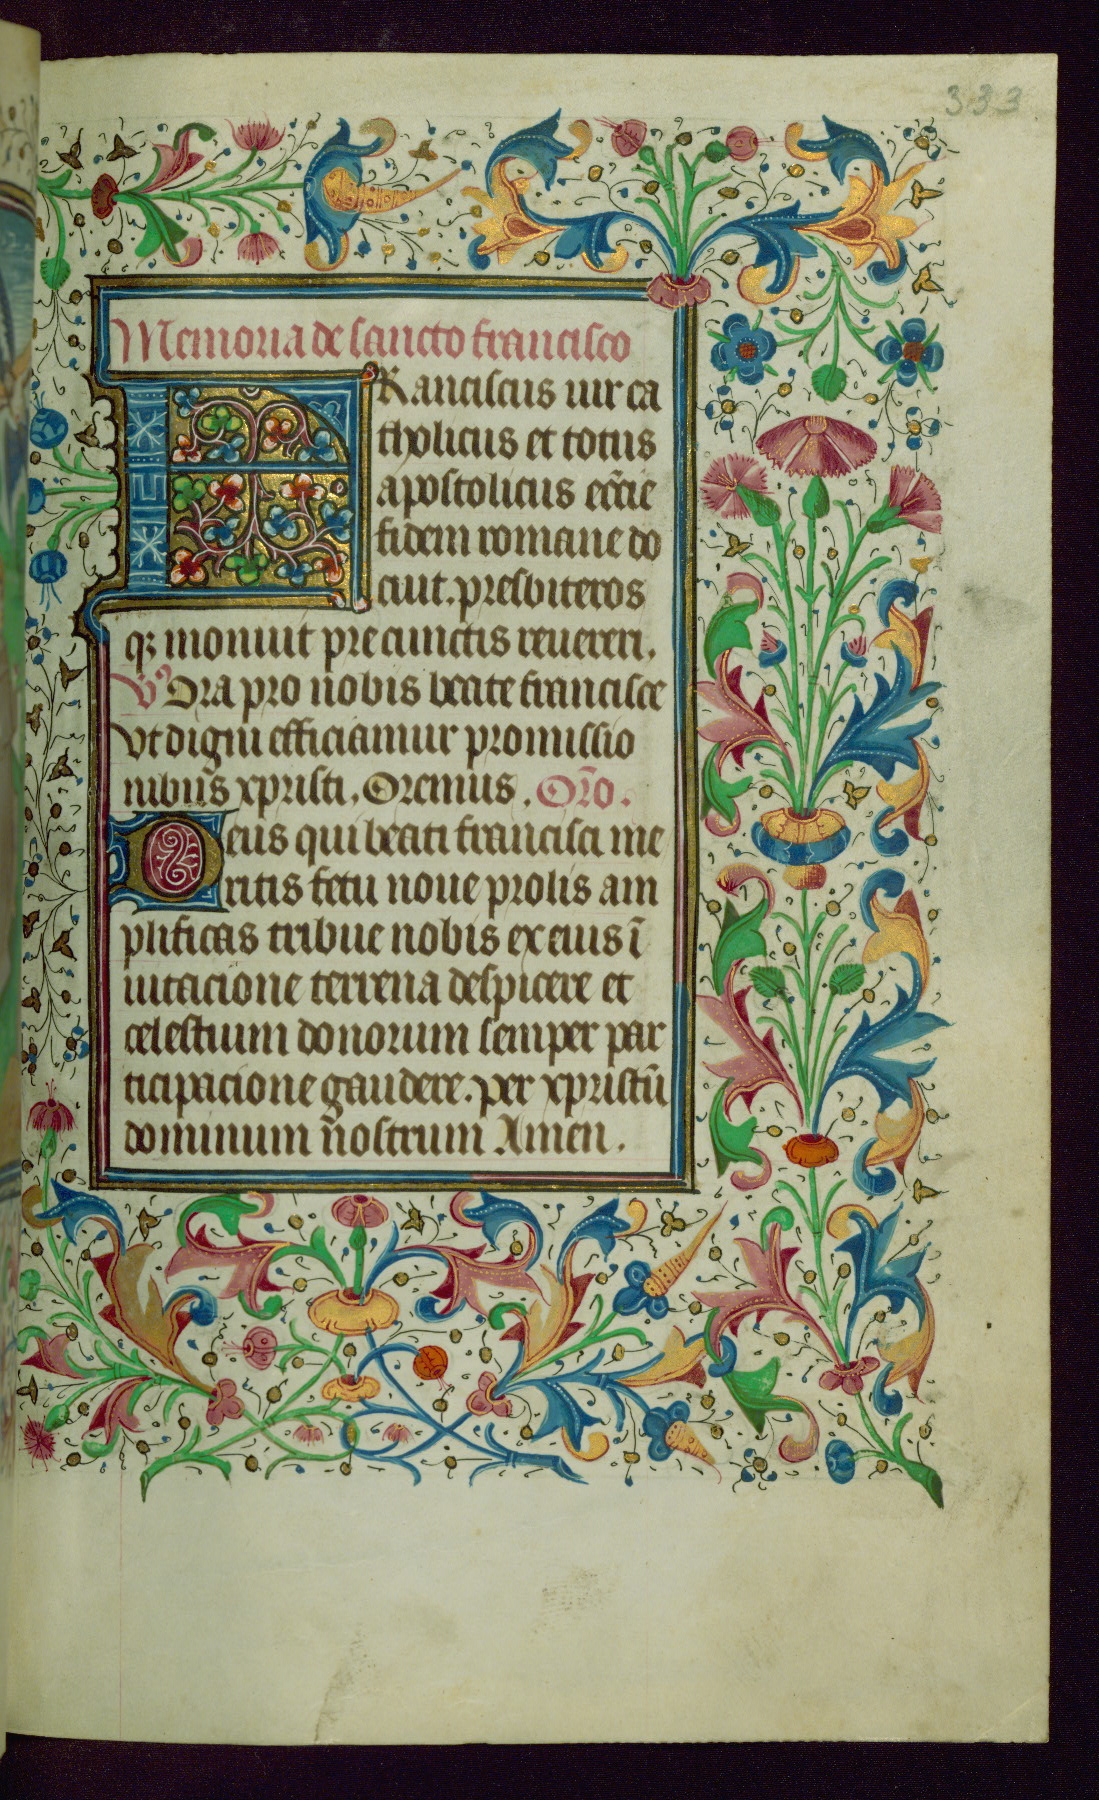 333
Memoria de sancto francisco
FRanciscus uir ca
tholicus et totus
apostolicus ecc̄ie
fidem romane do
cuit. presbiteros
qꝫ monuit pre cunctis reuereri.
V̓ Ora pro nobis beate francisce
Vt digni efficiamur promissio
nibus̄ xpristi. Oremus. Or̄o.
Deus qui beati francisci me
ritis fetu noue prolis am
plificas tribue nobis ex eius ī
mitacione terrena despicere et
celestium donorum semper par
ticipacione gaudere. per xpristū
dominum n̄ostrum Amen.